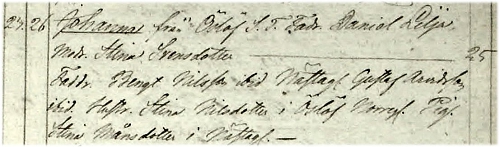 27. 26 Johanna från Öslöf S. T. Fadr. Daniel Lilja
Modr. Stina Svensdotter 25
Faddr. Bengt Nilsson ibid Näftagl Gustaf Arvidsson
ibid. Hustr. Stina Nilsdotter i Öslöf Norreg. Pig.
Stina Månsdotter i Näftagl. —